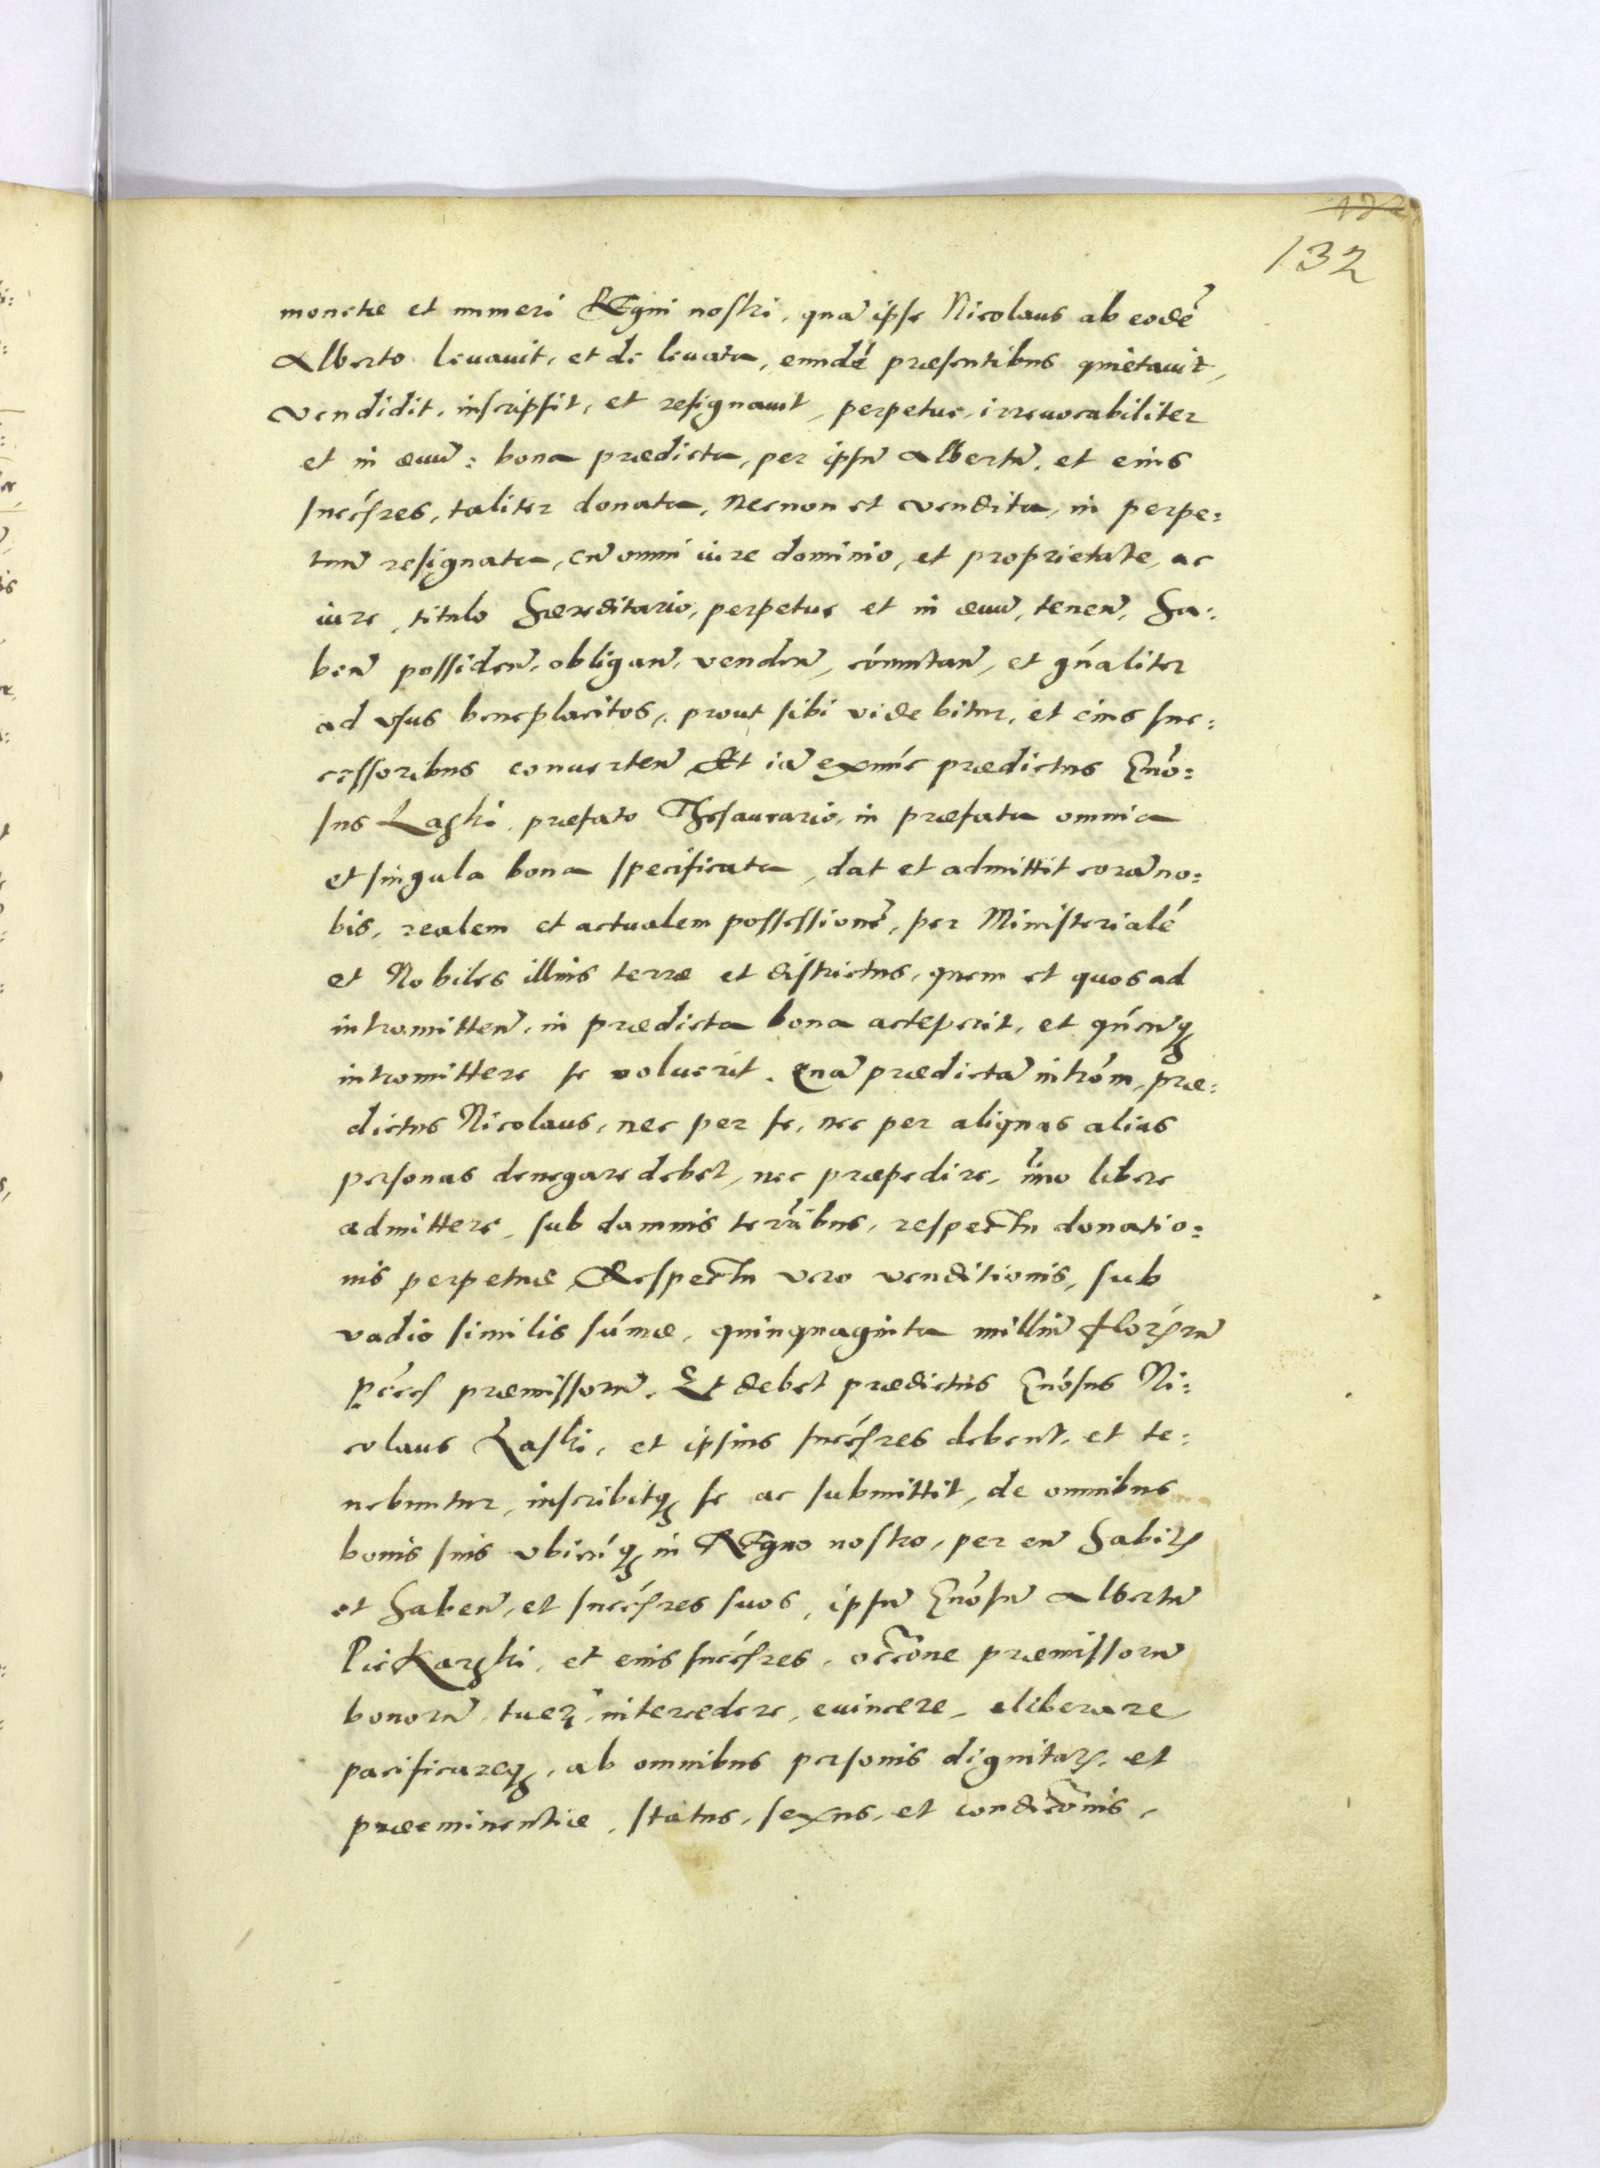 132
monetæ et numeri REgni nostri, quã ipse Nicolaus ab eodẽ
Alberto levauit, et de levata, eundẽ præsentibus quietauit,
vendidit, inscripsit, et resignauit, perpetue, irreuocabiliter
et in æuũ: bona prædicta, per ipsũ Albertũ, et eius
succ̃sres, taliter donata, necnon et vendita, in perpe:
tuũ resignata, cũ omni iure dominio, et proprietate, ac
iure, titulo hæreditario, perpetue et in æuũ, teneñ, ha:
beñ possideñ, obligañ, vendeñ, cõmutañ, et gñaliter
ad vsus beneplacitos, prout sibi videbitur, et eius suc:
cessoribus conuerteñ Et iã ex nũc prædictus Gñõ:
sus Laski, præfato Thesaurario, in præfata omnia
et singula bona specificata, dat et admittit corã no:
bis, realem et actualem possessionẽ, per Ministerialẽ
et Nobiles illius terræ et districtus, quem et quos ad
intromitteñ, in prædicta bona acceperit, et qñcũq
intromittere se voluerit. Quã prædictã intrõm, præ:
dictus Nicolaus, nec per se, nec per aliquas alias
personas denegare debet, nec præpedire, imo libere
admittere, sub damnis terr̃ibus, respectu donatio:
nis perpetuæ, Respectu vero venditionis, sub
vadio similis sũmæ, quinquaginta milliũ florẽrũ
præmissorũ. Et debet prædictus Gñõsus Ni:
colaus Laski, et ipsius succ̃sres debent, et te:
nebuntur, inscribitq se ac submittit, de omnibus
bonis suis vbicũq in REgno nostro, per eũ habit̃
et habeñ, et succ̃sres suos, ipsũ Gñõsũ Albertũ
PieKarski, et eius succ̃sres, occ̃one præmissorũ
bonorũ, tueri, intercedere, euincere, eliberare
pacificareq, ab omnibus personis dignitat̃, et
præeminentiæ, status, sexus, et condic̃onis,